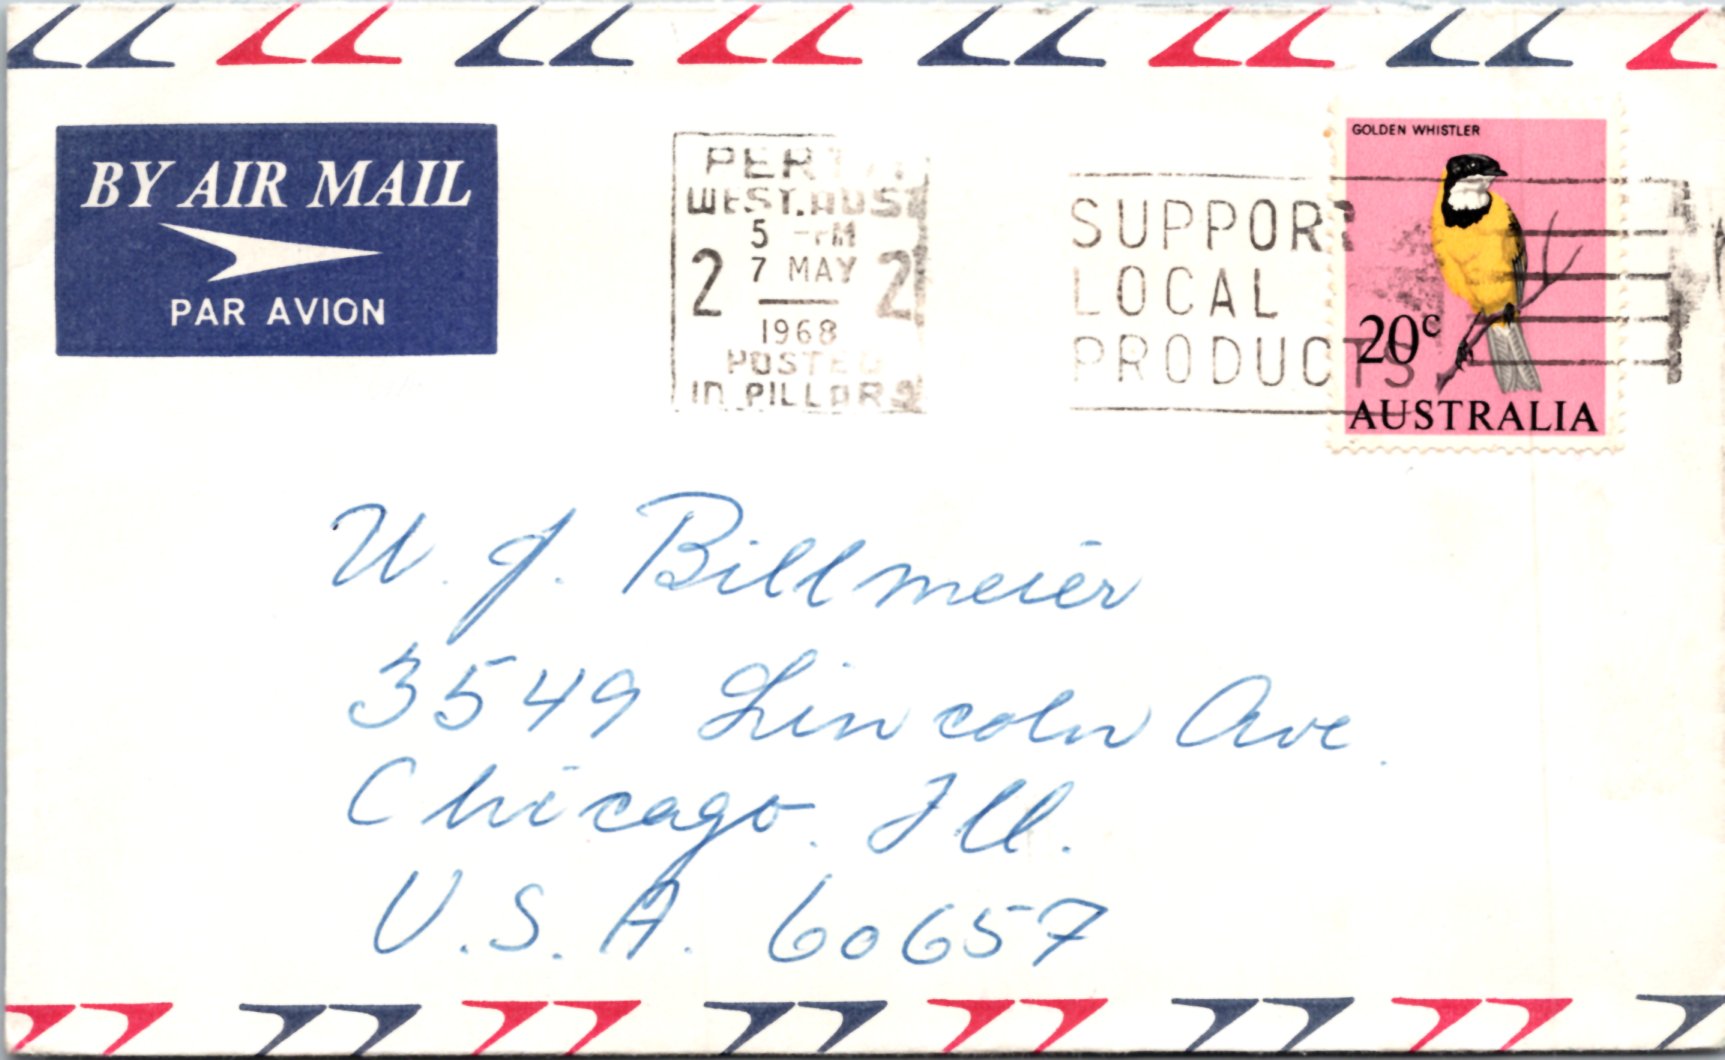 BY AIR MAIL
PAR AVION
PERTH
WEST. AUST
5 -PM
2 7 MAY 2
1968
POSTED
IN PILLARS
SUPPORT
LOCAL
PRODUCTS
GOLDEN WHISTLER
20c
AUSTRALIA
W. J. Billmeier
3549 Lincoln Ave.
Chicago. Ill.
U.S.A. 60657